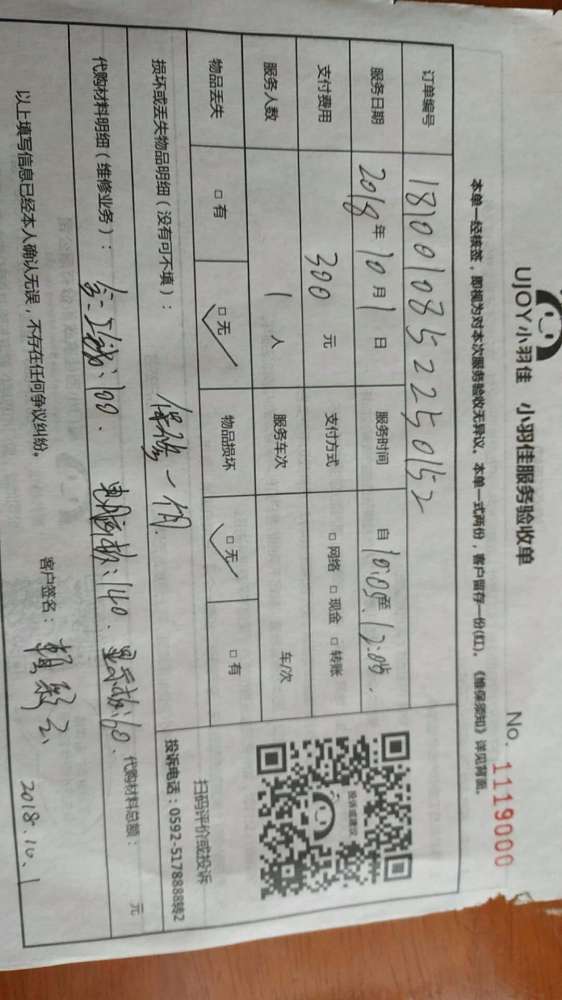 UJOY小羽佳 小羽佳服务验收单
No. 1119000
本单一经核签，即视为对本次服务验收无异议。本单一式两份，客户留存一份(红)。《维保须知》详见背面。
订单编号 1810010852250152
服务日期 2018年10月1日 服务时间 自10:05至12:05.
支付费用 300 元 支付方式 □网络 □现金 □转账
服务人数 1 人 服务车次 车/次
物品丢失 □有 □无 物品损坏 □无 □有
投诉或建议
扫码评价或投诉
投诉电话：0592-5178888转2
损坏或丢失物品明细（没有可不填）：
代购材料明细（维修业务）： 100. 140. 60. 代购材料总额： 元
以上填写信息已经本人确认无误，不存在任何争议纠纷。
客户签名： 2018.10.1